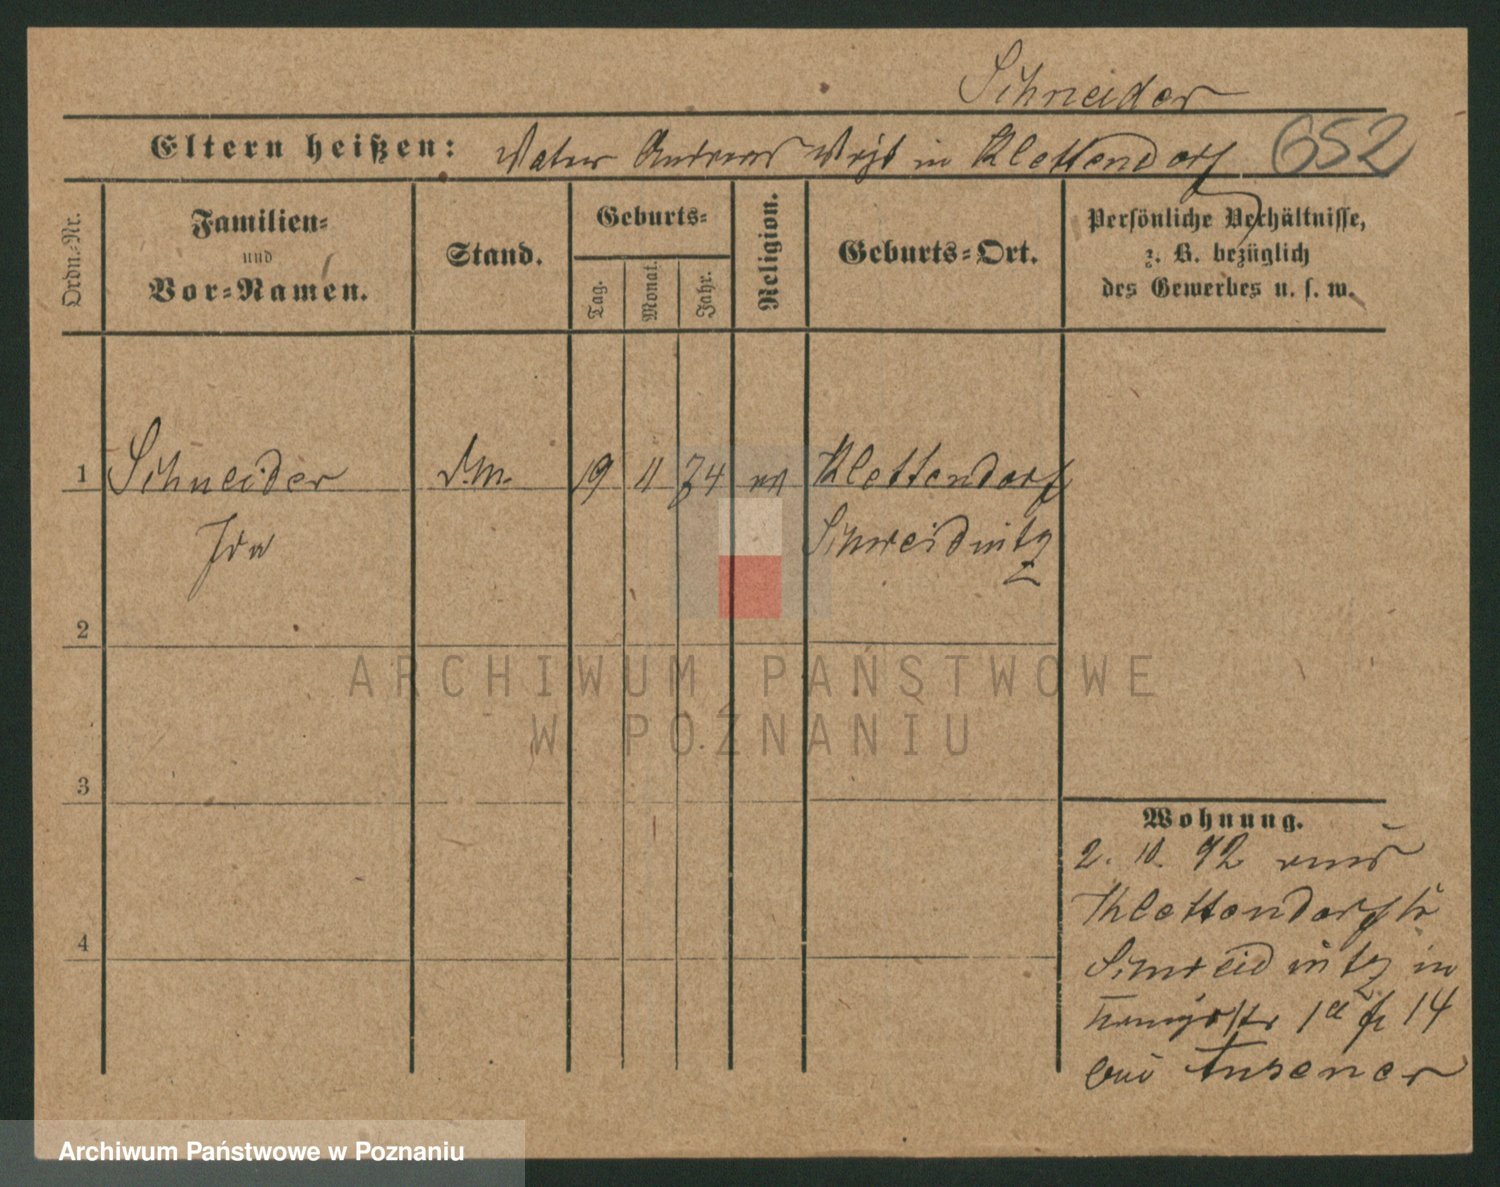 Schneider
Eltern heißen: Vater Andreas in Klettendorf 652
Ordn.-Nr.
Familien-
und
Vor-Namen.
Stand.
Geburts-
Tag.
Monat.
Jahr.
Religion.
Geburts-Ort.
Persönliche Verhältnisse,
z. B. bezüglich
des Gewerbes u. s. w.
1 Schneider d.M. 19 11 74 ev Klettendorf
Ida Schweidnitz
2
3
4
Wohnung.
2. 10. 92 aus
Klettendorf Kr
Schweidnitz in
1a fr 14
bei
ARCHIWUM PAŃSTWOWE
W POZNANIU
Archiwum Państwowe w Poznaniu